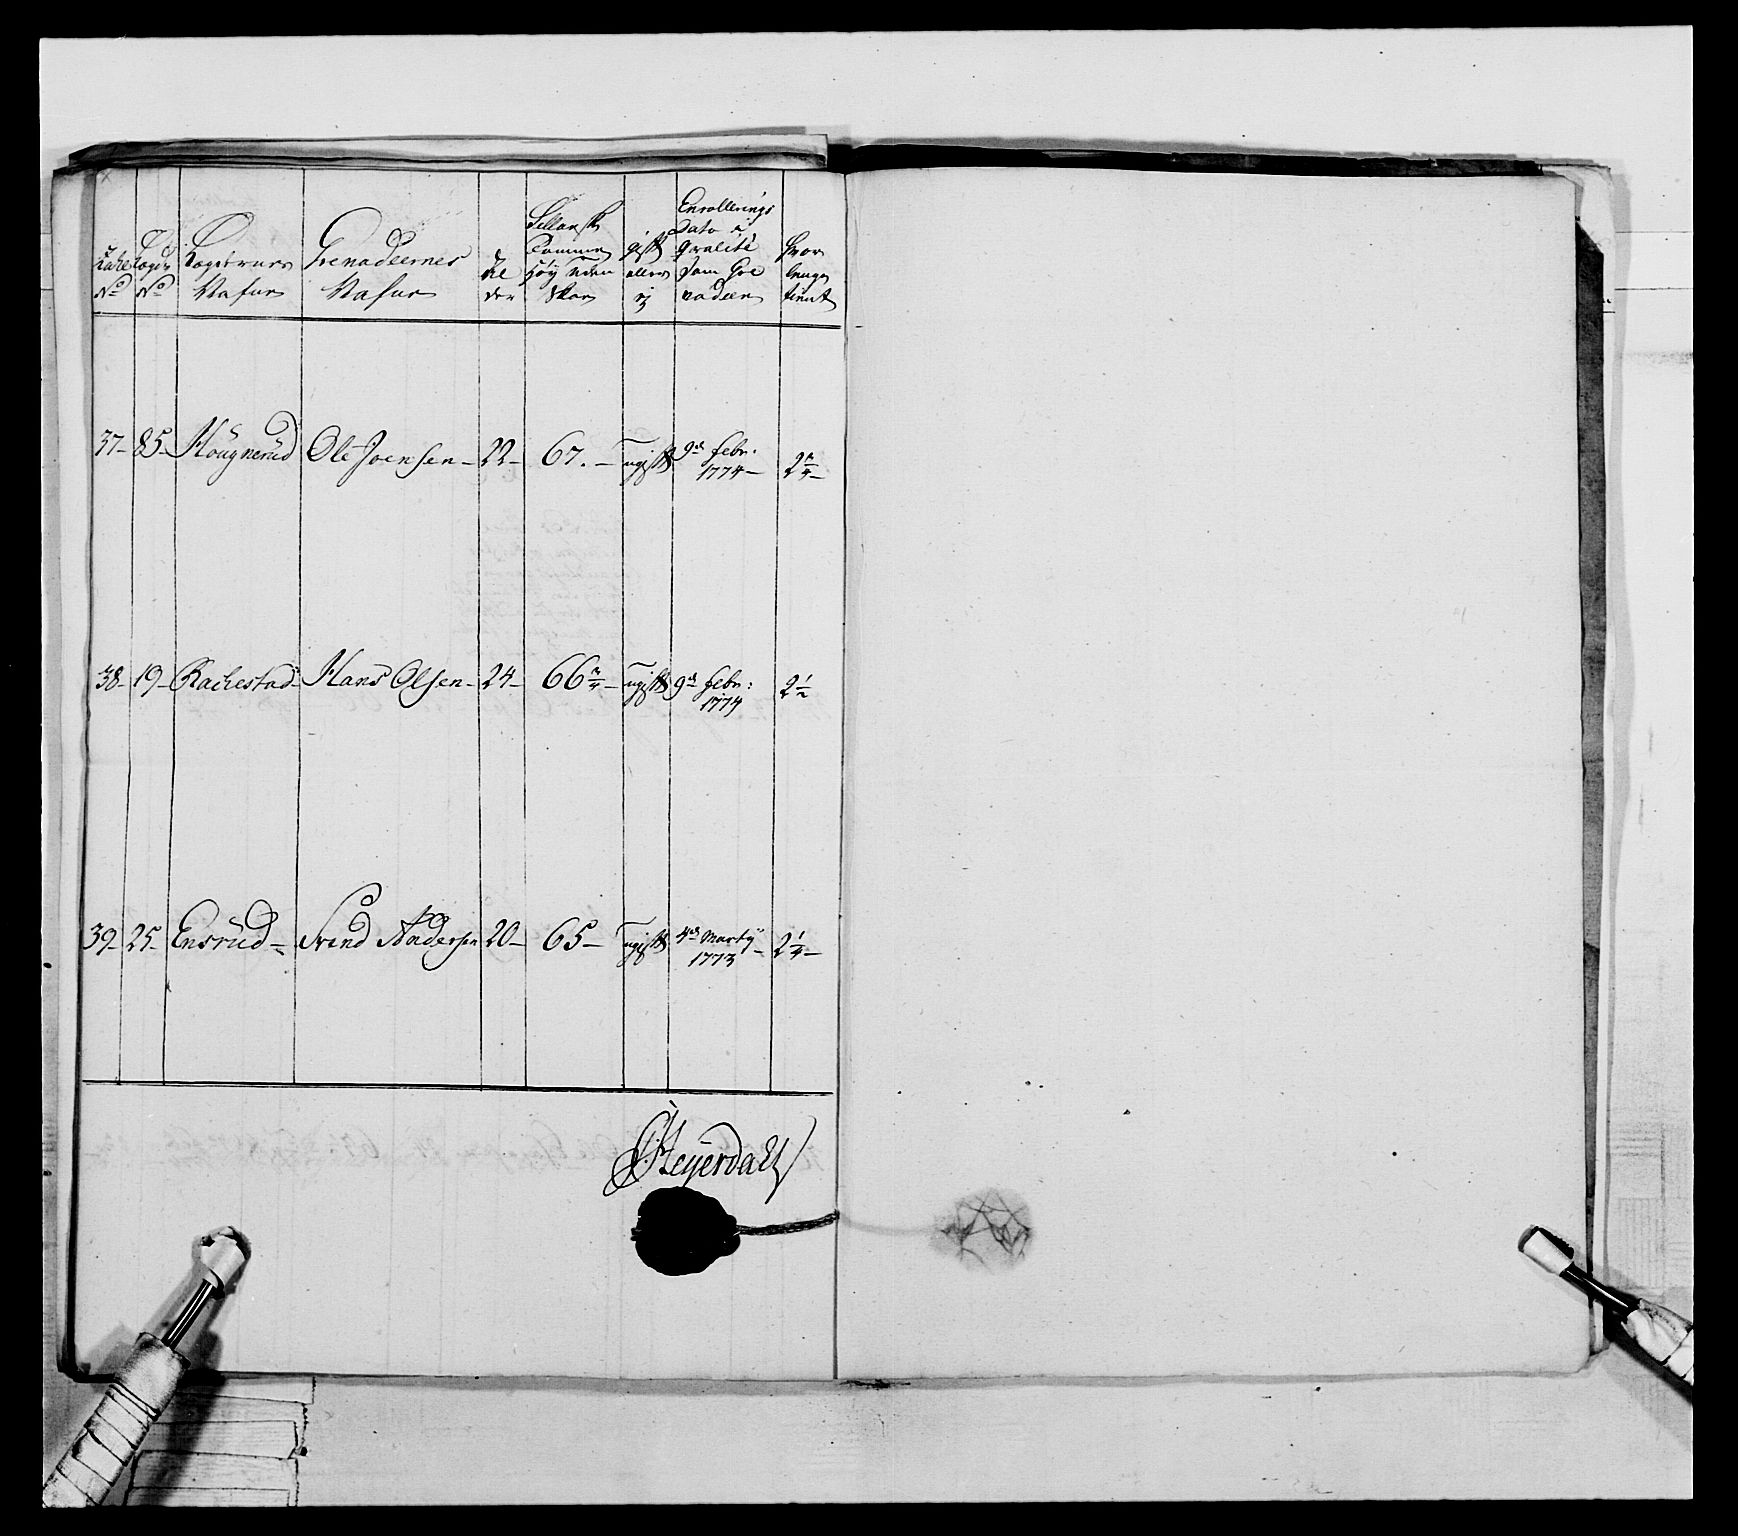 Lægdernes Nafne
Grenadeernes Nafne
Al der
Sellandsk Tomme høy uden Skoe
gift eller ej
Enrollerings Dato i Qvalité som Gre nadeer
hvor lenge tient
No No
37- 85- Hougnerud Ole Joensen- 22- 67.- ugift 9de Febr. 1774- 2 3/4-
38- 19- Rachestad- Hans Olsen- 24- 66 3/4- ugift 9de Febr: 1774 2 1/2
39- 25- Ensrud- Svend Andersen 20- 65- ugift 4de Marty 1773- 2 1/4-
Heyerdahl